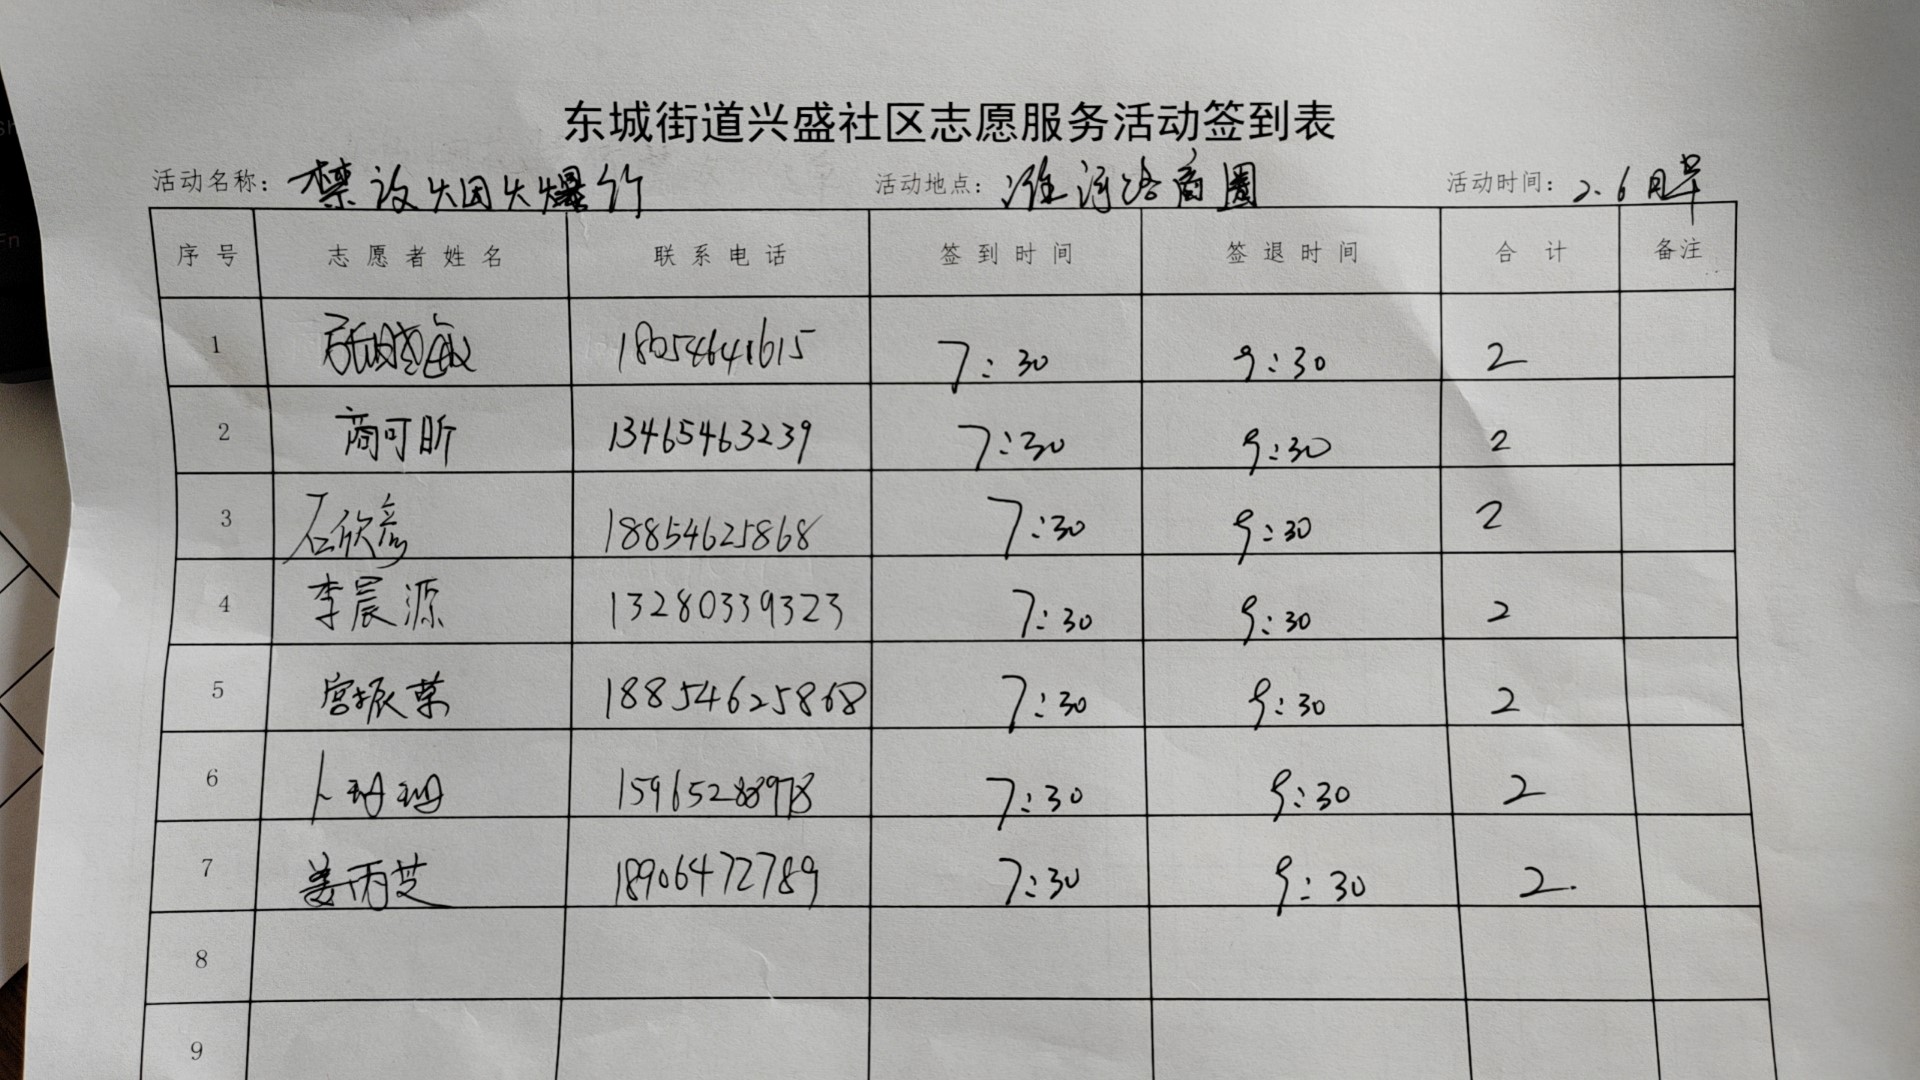 东城街道兴盛社区志愿服务活动签到表
活动名称： 禁放烟火爆竹 活动地点： 潍河路商圈 活动时间： 2.6日早
序号 志愿者姓名 联系电话 签到时间 签退时间 合计 备注
1 张晓敏 18054641615 7:30 9:30 2
2 商可昕 13465463239 7:30 9:30 2
3 石欣彦 18854625868 7:30 9:30 2
4 李晨源 13280339323 7:30 9:30 2
5 宫振荣 18854625868 7:30 9:30 2
6 卜珊珊 7:30 9:30 2
7 姜丙芝 18906472789 7:30 9:30 2.
8
9